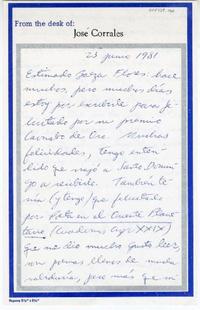 From the desk of:
José Corrales
23 junio 1981
Estimado Garza Flores: hace
muchos, pero muchos días
estoy por escribirte para fe-
licitarte por su premio
de Oro. Muchas
felicidades, tengo enten-
dido que viajó a Santo Domin-
go a recibirlo. También te-
nía (y tengo) que felicitarte
por
(Cuadernos XXIX)
que me dio mucho gusto leer,
son poemas llenos de mucha
sabiduría, pero más que ni